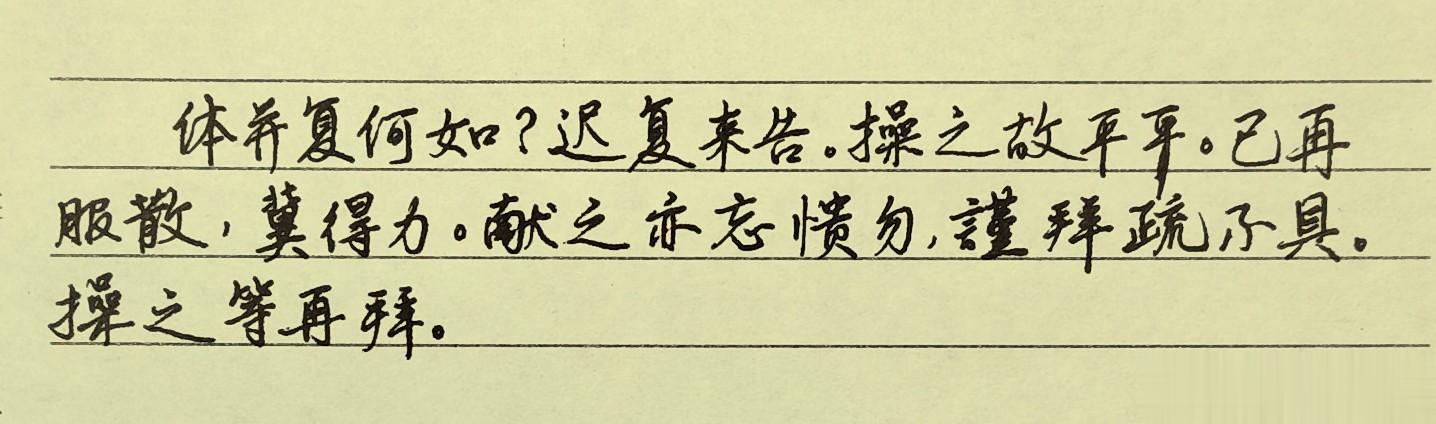 体并复何如?迟复来告。操之故平平。已再
服散,冀得力。献之亦忘愦勿,謹拜疏不具。
操之等再拜。